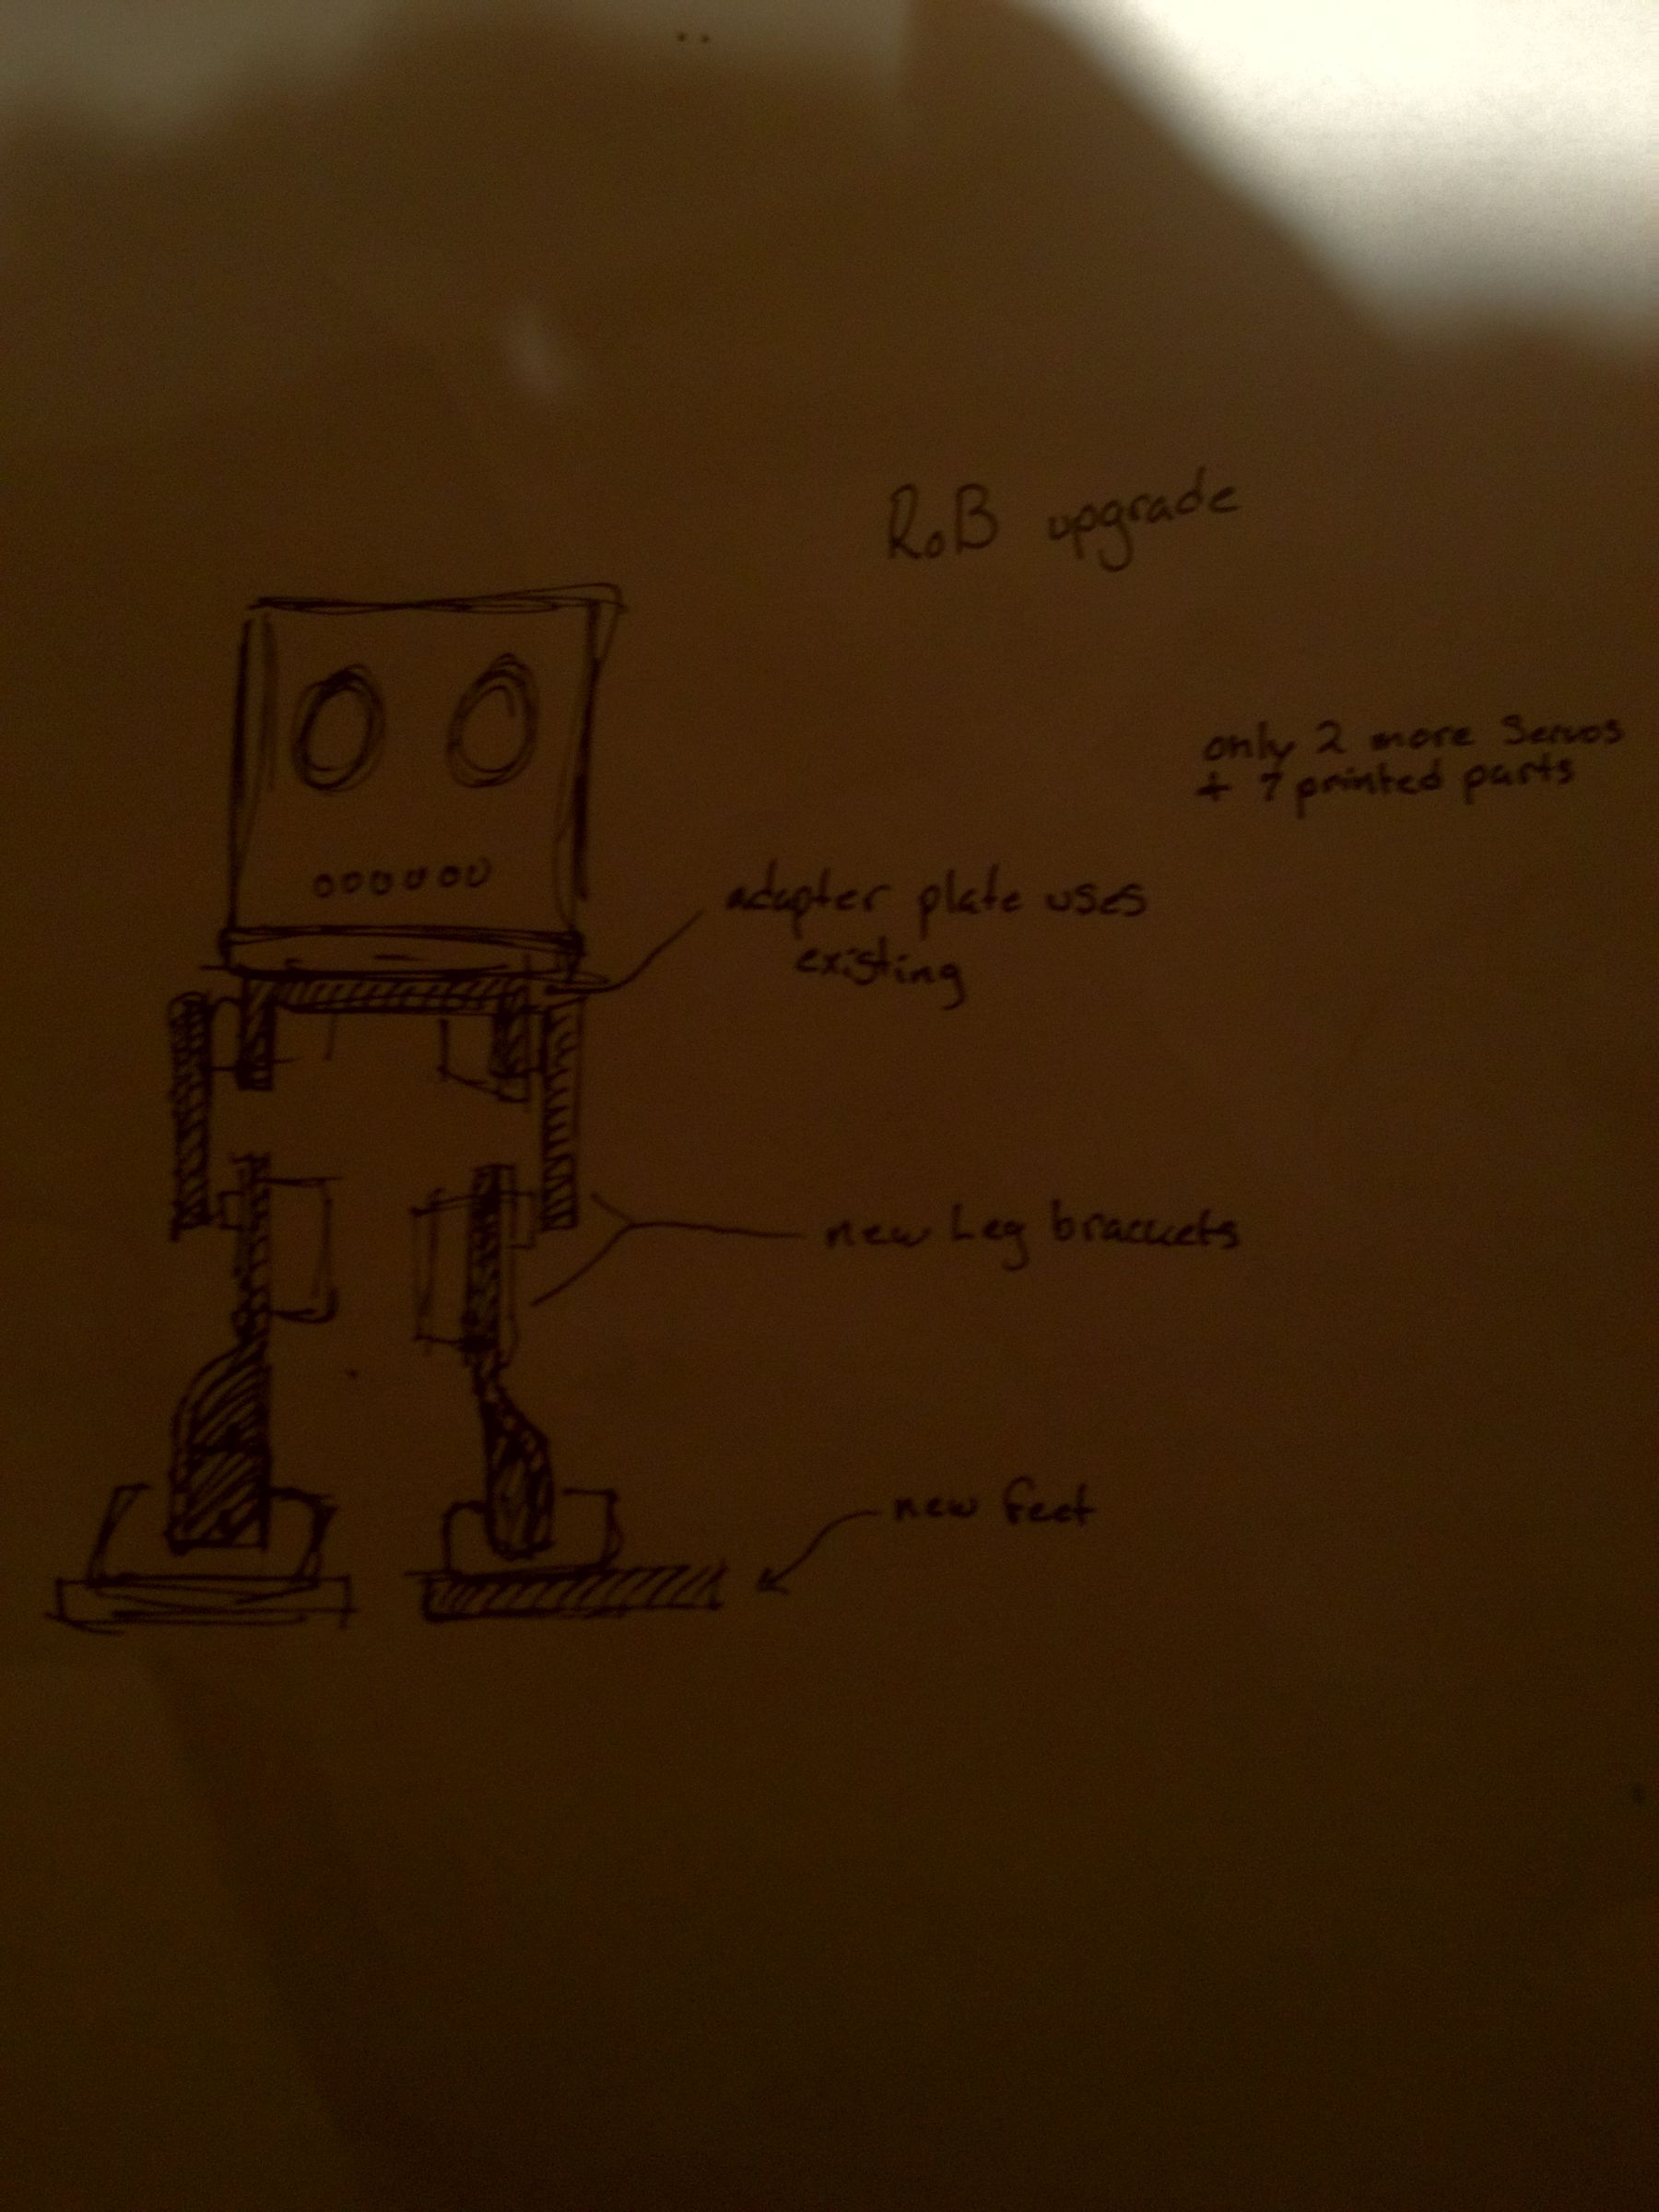 RoB upgrade
only 2 more Servos
+ 7 printed parts
adapter plate uses
existing
new Leg brackets
new feet